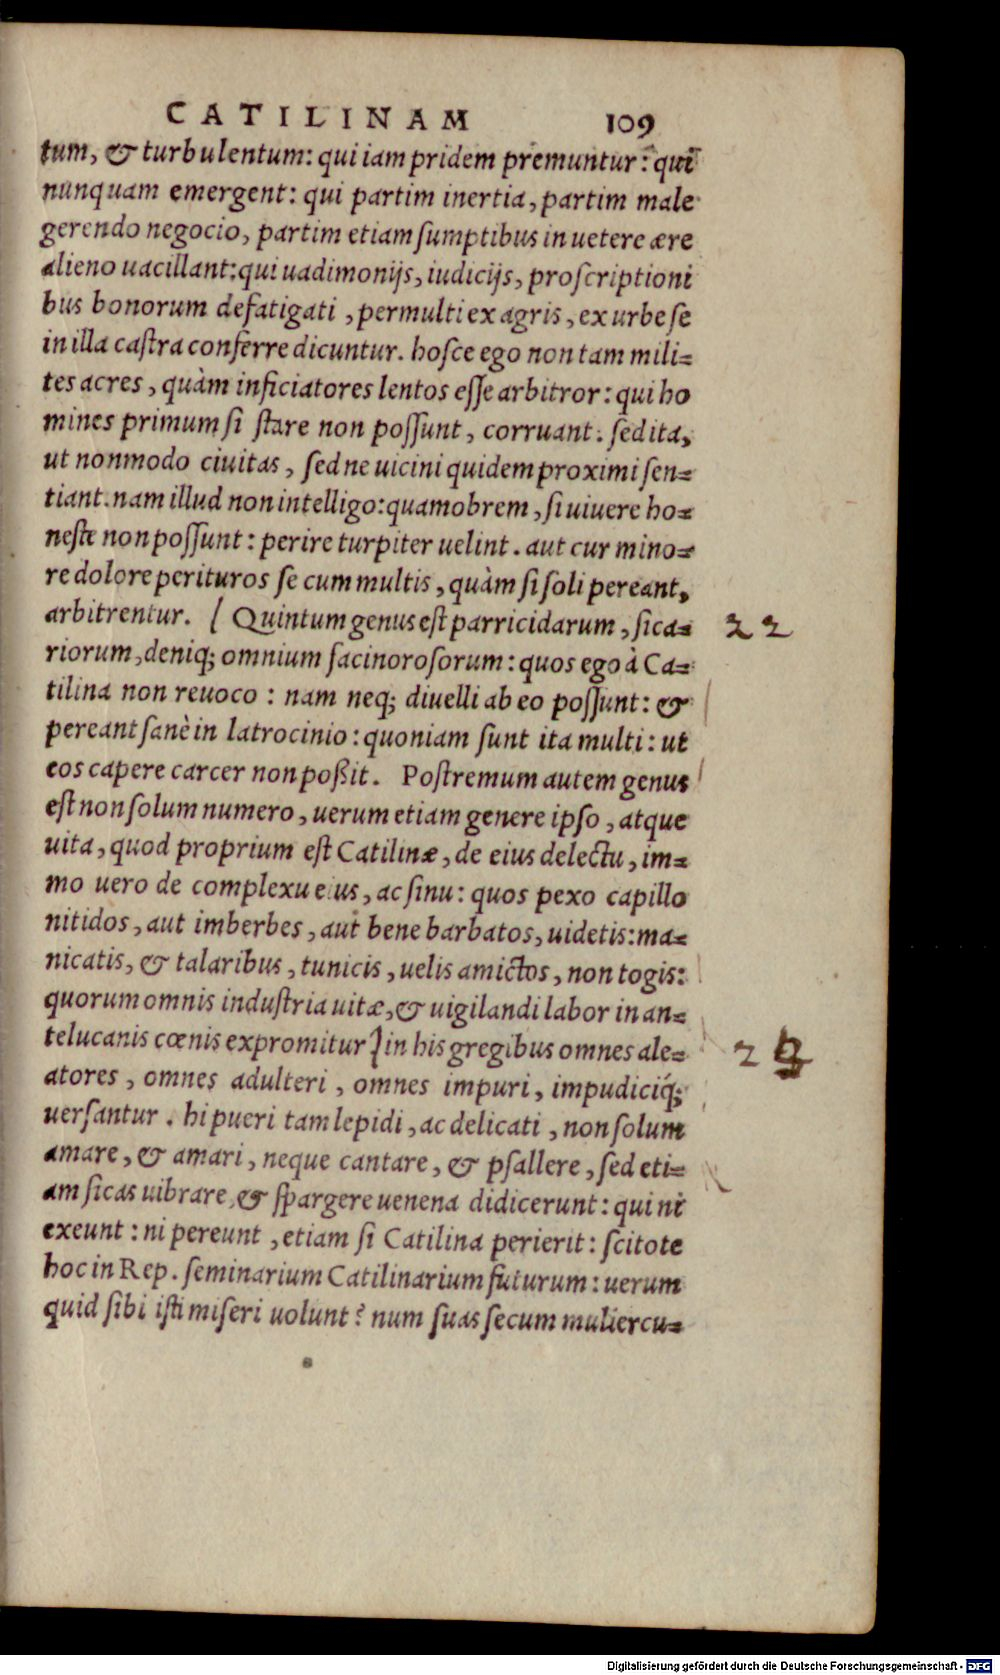 CATILINAM 109
tum, & turbulentum: qui iam pridem premuntur: qui
nunquam emergent: qui partim inertia, partim male
gerendo negocio, partim etiam sumptibus in uetere ære
alieno uacillant: qui uadimonijs, iudicijs, proscriptioni
bus bonorum defatigati, permulti ex agris, ex urbe se
in illa castra conferre dicuntur. hosce ego non tam mili=
tes acres, quàm inficiatores lentos esse arbitror: qui ho
mines primum si stare non possunt, corruant: sed ita,
ut nonmodo ciuitas, sed ne uicini quidem proximi sen=
tiant. nam illud non intelligo: quamobrem, si uiuere ho=
neste non possunt: perire turpiter uelint. aut cur mino=
re dolore perituros se cum multis, quàm si soli pereant,
arbitrentur. [ Quintum genus est parricidarum, sica= 22
riorum, deniq; omnium facinorosorum: quos ego à Ca=
tilina non reuoco: nam neq; diuelli ab eo possunt: &
pereant sanè in latrocinio: quoniam sunt ita multi: ut
eos capere carcer non poßit. Postremum autem genus
est non solum numero, uerum etiam genere ipso, atque
uita, quod proprium est Catilinæ, de eius delectu, im=
mo uero de complexu eius, ac sinu: quos pexo capillo
nitidos, aut imberbes, aut bene barbatos, uidetis: ma=
nicatis, & talaribus, tunicis, uelis amictos, non togis:
quorum omnis industria uitæ, & uigilandi labor in an=
telucanis cœnis expromitur] in his gregibus omnes ale= 2
atores, omnes adulteri, omnes impuri, impudiciq́;
uersantur. hi pueri tam lepidi, ac delicati, non solum
amare, & amari, neque cantare, & psallere, sed eti=
am sicas uibrare, & spargere uenena didicerunt: qui ni
exeunt: ni pereunt, etiam si Catilina perierit: scitote
hoc in Rep. seminarium Catilinarium futurum: uerum
quid sibi isti miseri uolunt? num suas secum muliercu=
Digitalisierung gefördert durch die Deutsche Forschungsgemeinschaft - DFG